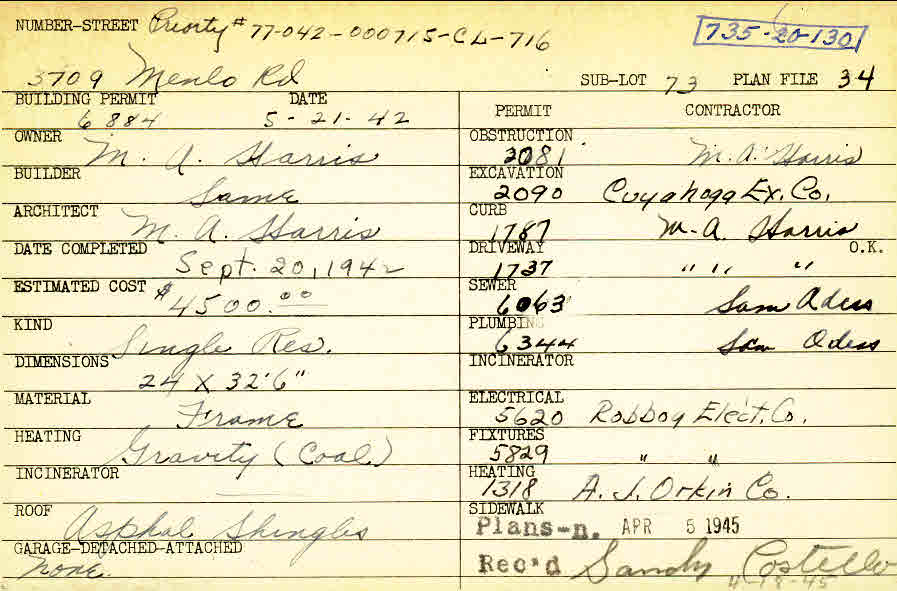 NUMBER-STREET Priorty # 77-042-000715-CL-716
735-20-130
3709 Menlo Rd SUB-LOT 73 PLAN FILE 34
BUILDING PERMIT DATE
6884 5-21-42
OWNER
M. A. Harris
BUILDER
Same
ARCHITECT
M. A. Harris
DATE COMPLETED
Sept. 20, 1942
ESTIMATED COST
$4500.00
KIND
Single Res.
DIMENSIONS
24 X 32'6"
MATERIAL
Frame
HEATING
Gravity (Coal)
INCINERATOR
ROOF
Asphal Shingles
GARAGE-DETACHED-ATTACHED
none.
PERMIT CONTRACTOR
OBSTRUCTION
2081 M. A. Harris
EXCAVATION
2090 Cuyahoga Ex. Co.
CURB
1787 M. A. Harris
DRIVEWAY O.K.
1737 " " "
SEWER
6063 Sam Odess
PLUMBING
6344 Sam Odess
INCINERATOR
ELECTRICAL
5620 Robboy Elect. Co.
FIXTURES
5829 " "
HEATING
1318 A. J. Orkin Co.
SIDEWALK
Plans-n. APR 5 1945
Rec'd Sandy Costello
4-18-45